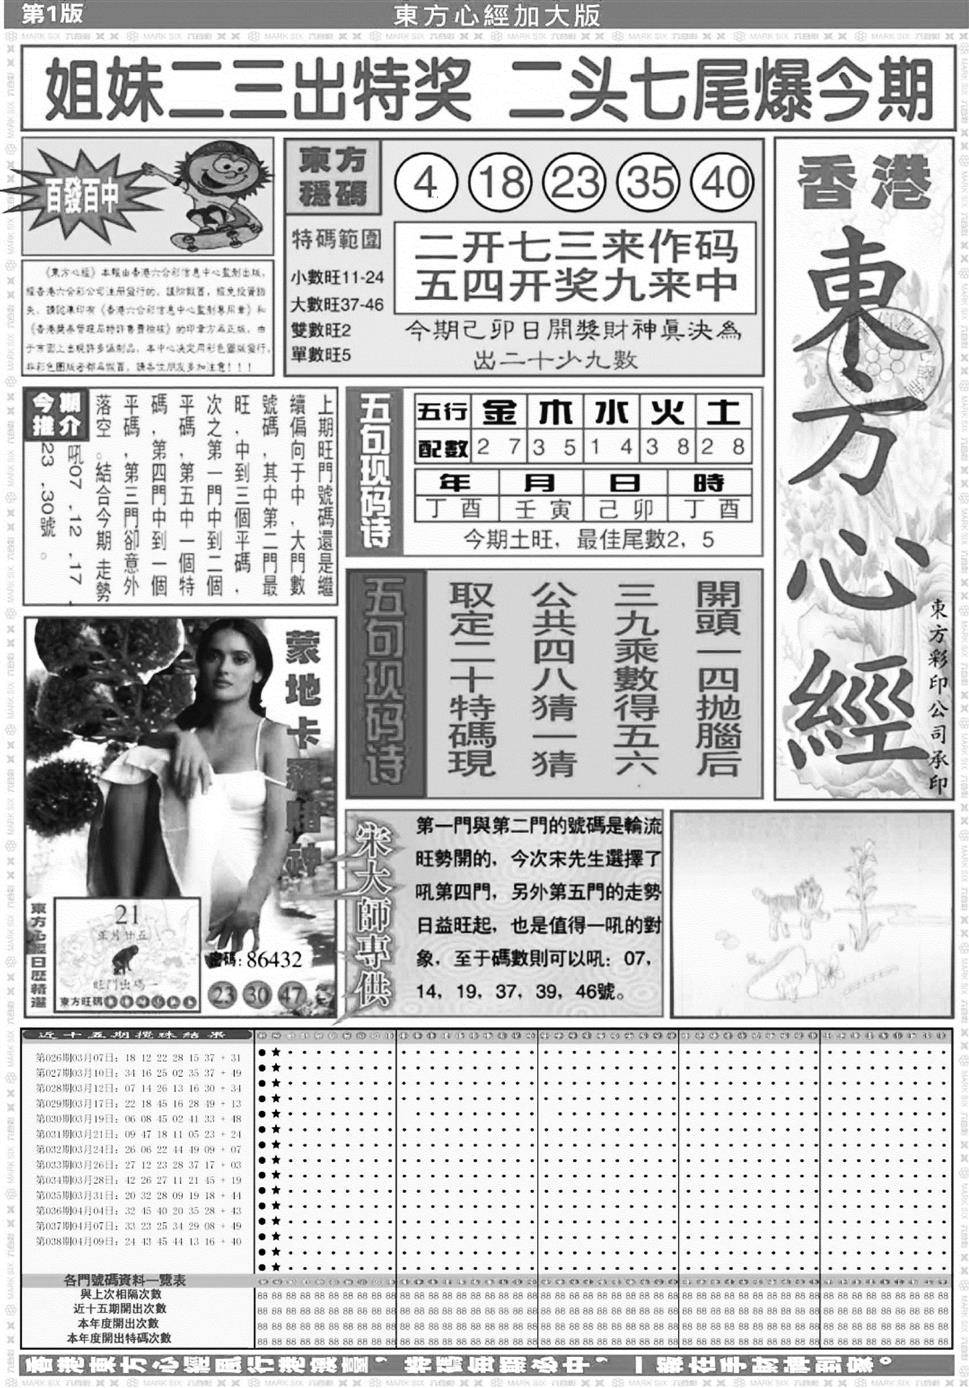 第1版
東方心經加大版
姐妹二三出特奖 二头七尾爆今期
百發百中
東方
穩碼
4 18 23 35 40
特碼範圍
小數旺11-24
大數旺37-46
雙數旺2
單數旺5
二开七三来作码
五四开奖九来中
今期己卯日開獎財神眞決為
出二十少九數
香港
東方心經
東方彩印公司承印
《東方心經》本報由香港六合彩信息中心監制出版，
經香港六合彩公司注册發行的，謹防假冒，避免投資損
失，請認準印有《香港六合彩信息中心監制專用章》和
今期
推介
上期旺門號碼還是繼
續偏向于中，大門數
號碼，其中第二門最
旺，中到三個平碼，
次之第一門中到二個
平碼，第五中一個特
碼，第四門中到一個
平碼，第三門卻意外
落空。結合今期走勢
吼07，12，17，
23，30號。
五句现码诗
五行 金 木 水 火 土
配數 2 7 3 5 1 4 3 8 2 8
年 月 日 時
丁酉 壬寅 己卯 丁酉
今期土旺，最佳尾數2，5
五句现码诗
開頭一四拋腦后
三九乘數得五六
公共四八猜一猜
取定二十特碼現
蒙地卡羅賭神
東方心經日歷精選
21
旺門出碼一
東方旺碼
密碼：86432
23 30 47
宋大師專供
第一門與第二門的號碼是輪流
旺勢開的，今次宋先生選擇了
吼第四門，另外第五門的走勢
日益旺起，也是值得一吼的對
象，至于碼數則可以吼：07，
14，19，37，39，46號。
近十五期攪珠結果
第026期03月07日：18 12 22 28 15 37 + 31
第027期03月10日：34 16 25 02 35 37 + 49
第028期03月12日：07 14 26 13 16 30 + 34
第029期03月17日：22 18 45 16 28 49 + 13
第030期03月19日：06 08 45 02 41 33 + 48
第031期03月21日：09 47 18 11 05 23 + 24
第032期03月24日：26 06 22 44 49 09 + 07
第033期03月26日：27 12 23 28 37 17 + 03
第034期03月28日：42 26 27 11 21 45 + 19
第035期03月31日：20 32 28 09 19 18 + 44
第036期04月04日：32 45 40 20 35 28 + 43
第037期04月07日：33 23 25 34 29 08 + 49
第038期04月09日：24 43 45 44 13 16 + 40
各門號碼資料一覽表
與上次相隔次數
近十五期開出次數
本年度開出次數
本年度開出特碼次數